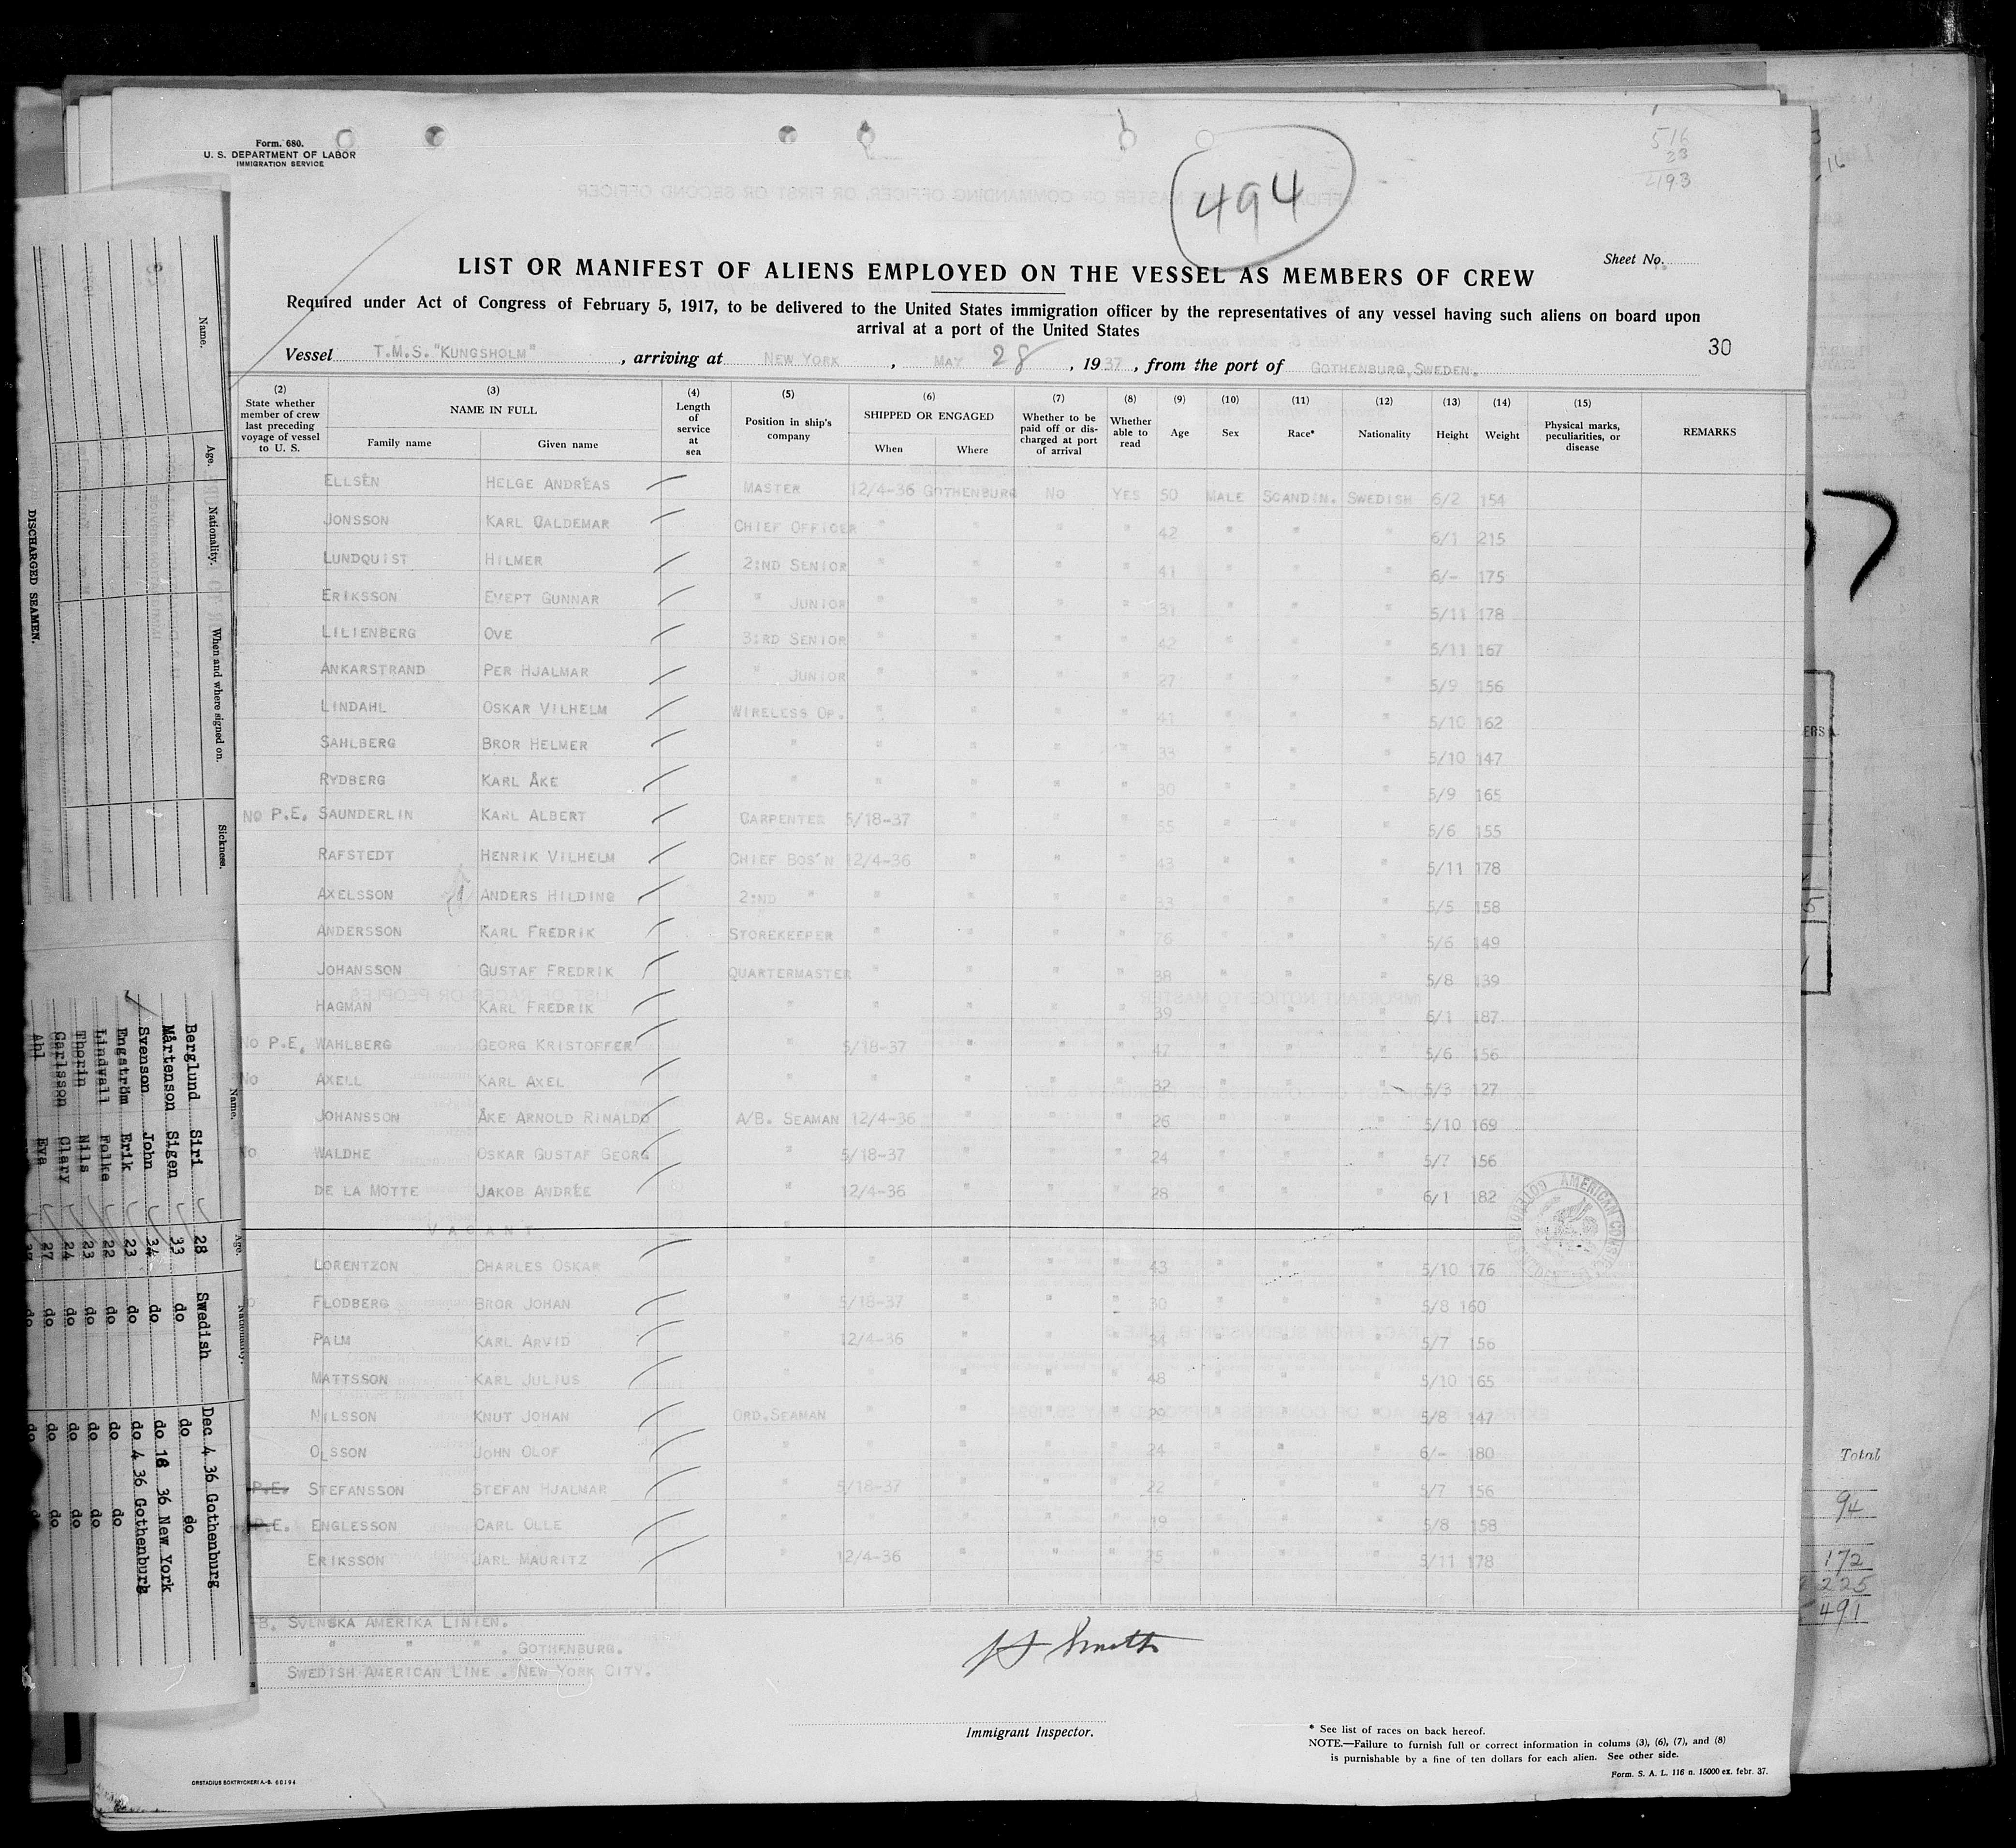 Form. 680.
U. S. DEPARTMENT OF LABOR
IMMIGRATION SERVICE
494
516
23
493
Sheet No.
LIST OR MANIFEST OF ALIENS EMPLOYED ON THE VESSEL AS MEMBERS OF CREW
Required under Act of Congress of February 5, 1917, to be delivered to the United States immigration officer by the representatives of any vessel having such aliens on board upon
arrival at a port of the United States
30
Vessel T.M.S. "KUNGSHOLM", arriving at NEW YORK, MAY 28, 1937, from the port of GOTHENBURG, SWEDEN.
(2) (3) (4) (5) (6) (7) (8) (9) (10) (11) (12) (13) (14) (15)
State whether member of crew last preceding voyage of vessel to U. S. NAME IN FULL Family name Given name Length of service at sea Position in ship's company SHIPPED OR ENGAGED When Where Whether to be paid off or discharged at port of arrival Whether able to read Age Sex Race* Nationality Height Weight Physical marks, peculiarities, or disease REMARKS
ELLSÉN HELGE ANDRÉAS MASTER 12/4-36 GOTHENBURG NO YES 50 MALE SCANDIN. SWEDISH 6/2 154
JONSSON KARL CALDEMAR CHIEF OFFICER " " " " 42 " " " 6/1 215
LUNDQUIST HILMER 2:ND SENIOR " " " " 41 " " " 6/- 175
ERIKSSON EVEPT GUNNAR " JUNIOR " " " " 31 " " " 5/11 178
LILIENBERG OVE 3:RD SENIOR " " " " 42 " " " 5/11 167
ANKARSTRAND PER HJALMAR " JUNIOR " " " " 27 " " " 5/9 156
LINDAHL OSKAR VILHELM WIRELESS OP. " " " " 41 " " " 5/10 162
SAHLBERG BROR HELMER " " " " " 33 " " " 5/10 147
RYDBERG KARL ÅKE " " " " " 30 " " " 5/9 165
NO P.E. SAUNDERLIN KARL ALBERT CARPENTER 5/18-37 " " " 55 " " " 5/6 155
RAFSTEDT HENRIK VILHELM CHIEF BOS'N 12/4-36 " " " 43 " " " 5/11 178
AXELSSON ANDERS HILDING 2:ND " " " " " 33 " " " 5/5 158
ANDERSSON KARL FREDRIK STOREKEEPER " " " " 76 " " " 5/6 149
JOHANSSON GUSTAF FREDRIK QUARTERMASTER " " " " 38 " " " 5/8 139
HAGMAN KARL FREDRIK " " " " " 39 " " " 6/1 187
NO P.E. WAHLBERG GEORG KRISTOFFER " 5/18-37 " " " 47 " " " 5/6 156
NO AXELL KARL AXEL " " " " " 32 " " " 5/3 127
JOHANSSON ÅKE ARNOLD RINALDO A/B. SEAMAN 12/4-36 " " " 26 " " " 5/10 169
NO WALDHE OSKAR GUSTAF GEORG " 5/18-37 " " " 24 " " " 5/7 156
DE LA MOTTE JAKOB ANDRÉE " 12/4-36 " " " 28 " " " 6/1 182
VACANT "
LORENTZON CHARLES OSKAR " " " " " 43 " " " 5/10 176
FLODBERG BROR JOHAN " 5/18-37 " " " 30 " " " 5/8 160
PALM KARL ARVID " 12/4-36 " " " 34 " " " 5/7 156
MATTSSON KARL JULIUS " " " " " 48 " " " 5/10 165
NILSSON KNUT JOHAN ORD.SEAMAN " " " " 29 " " " 5/8 147
OLSSON JOHN OLOF " " " " " 24 " " " 6/- 180
P.E. STEFANSSON STEFAN HJALMAR " 5/18-37 " " " 22 " " " 5/7 156
P.E. ENGLESSON CARL OLLE " " " " " 19 " " " 5/8 158
ERIKSSON JARL MAURITZ " 12/4-36 " " " 25 " " " 5/11 178
B. SVENSKA AMERIKA LINIEN.
" " " . GOTHENBURG.
SWEDISH AMERICAN LINE . NEW YORK CITY.
Immigrant Inspector.
* See list of races on back hereof.
NOTE.—Failure to furnish full or correct information in colums (3), (6), (7), and (8)
is purnishable by a fine of ten dollars for each alien. See other side.
Form. S. A. L. 116 n. 15000 ex. febr. 37.
ORSTADIUS BOKTRYCKERI A.-B. 60194
AMERICAN
DISCHARGED SEAMEN.
Name. Age. Nationality. When and where signed on. Sickness.
Name. Age. Nationality.
Berglund Siri 28 Swedish Dec 4 36 Gothenburg
Mårtenson Sigen 33 do do do
Svenson John 34 do do 18 36 New York
Engström Erik 23 do do 4 36 Gothenburg
Lindvall Folke 22 do do do
Thorin Nils 23 do do do
Carlsson Clary 24 do do do
Ahl Eva 27 do do do
Total
94
172
225
491